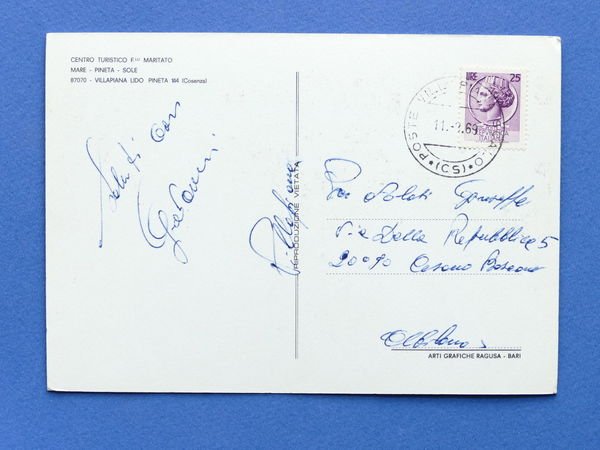 CENTRO TURISTICO F.LLI MARITATO
MARE - PINETA - SOLE
87070 - VILLAPIANA LIDO PINETA 164 (Cosenza)
Saluti cari
Giovanni
Villapiana
RIPRODUZIONE VIETATA
LIRE 25
POSTE ITALIANE
11.-8.69
(CS)
Giuseppe
Via Della Repubblica 5
20090 Cesano Boscone
Milano
ARTI GRAFICHE RAGUSA - BARI